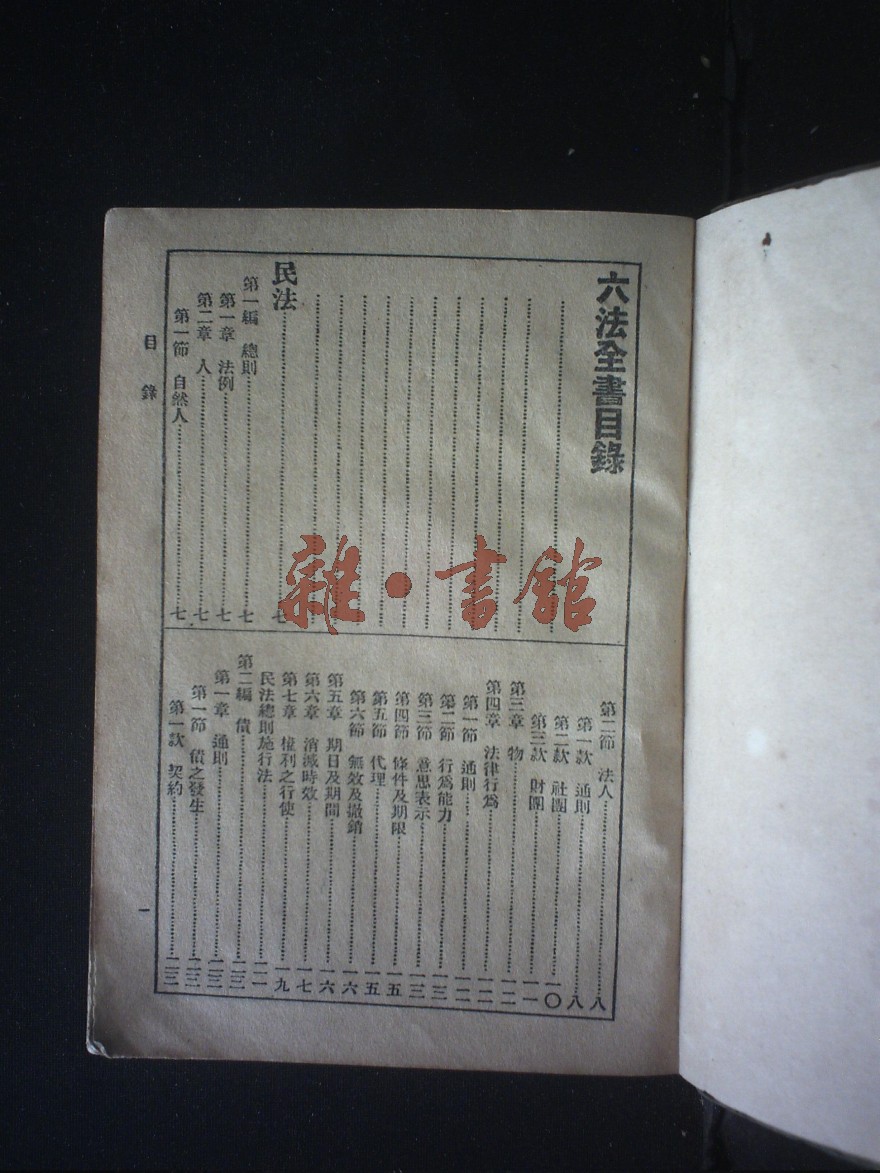 六法全書目錄
民法……七
第一編 總則……七
第一章 法例……七
第二章 人……七
第一節 自然人……七
第二節 法人……八
第一款 通則……八
第二款 社團……一〇
第三款 財團……一一
第三章 物……一二
第四章 法律行爲……一二
第一節 通則……一二
第二節 行爲能力……一三
第三節 意思表示……一三
第四節 條件及期限……一五
第五節 代理……一五
第六節 無效及撤銷……一六
第五章 期日及期間……一六
第六章 消滅時效……一七
第七章 權利之行使……一九
民法總則施行法……二一
第二編 債……二三
第一章 通則……二三
第一節 債之發生……二三
第一款 契約……二三
目錄
一
雜·書館